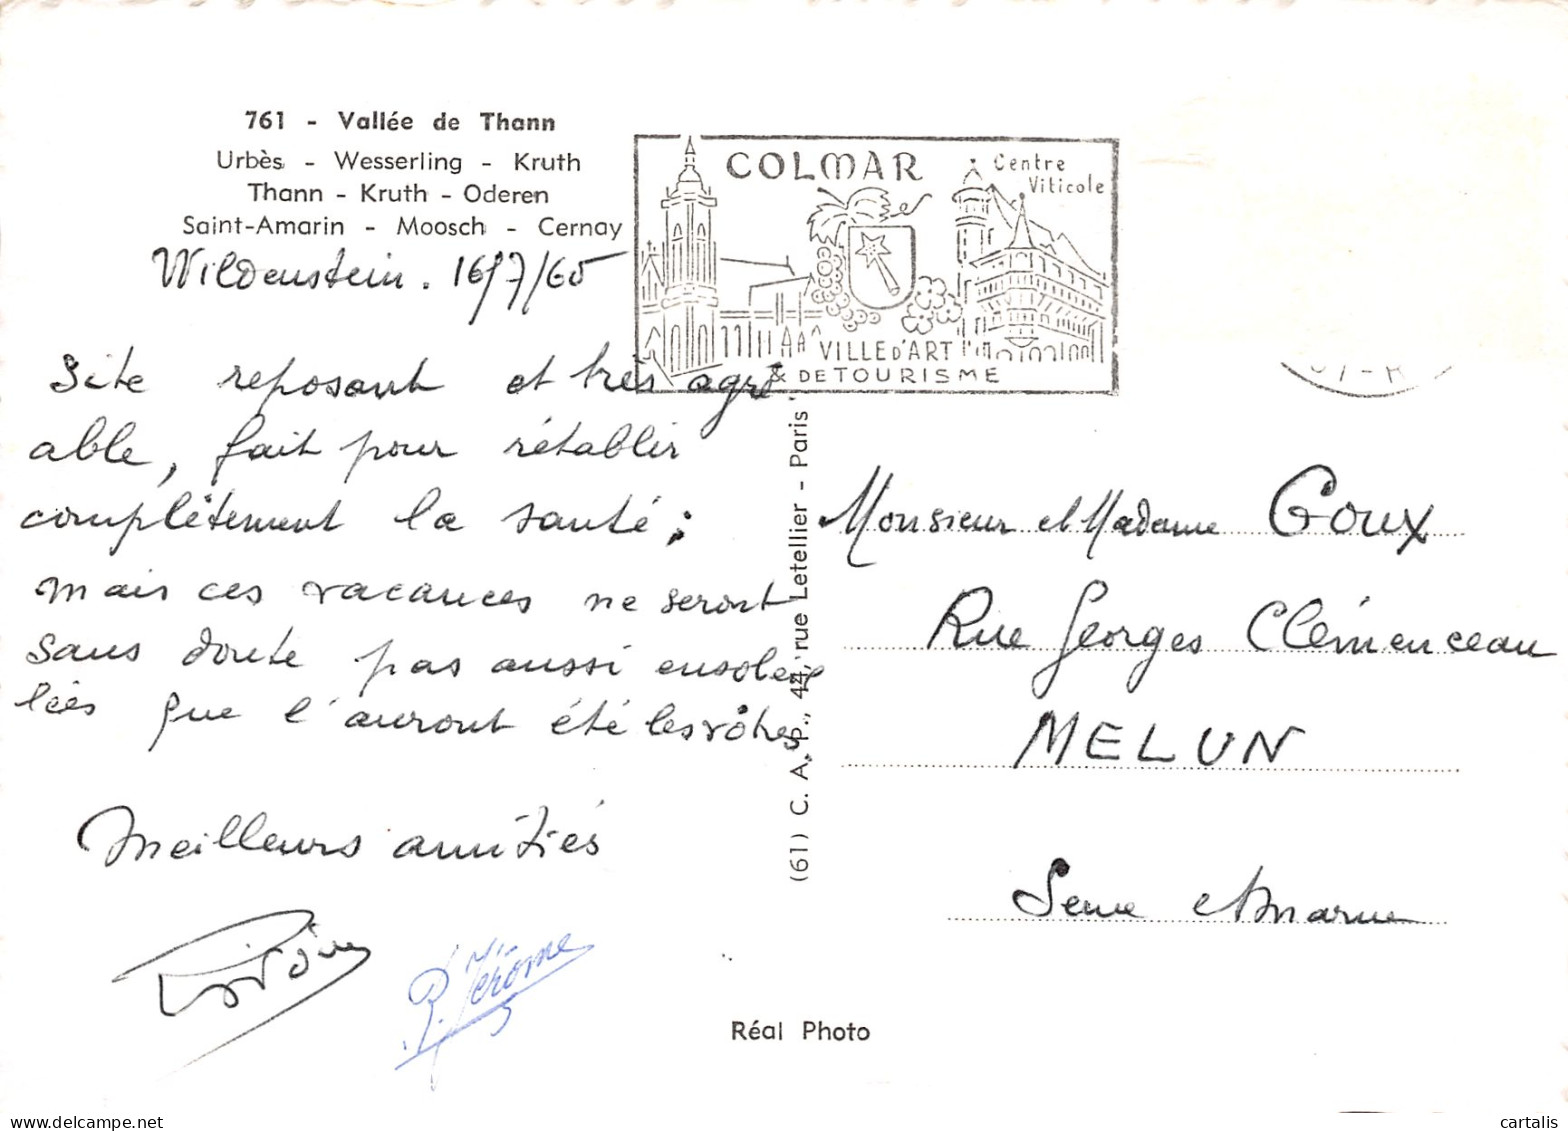 761 - Vallée de Thann
Urbès - Wesserling - Kruth
Thann - Kruth - Oderen
Saint-Amarin - Moosch - Cernay
Wildenstein. 16/7/65
Site reposant et très agré
able, fait pour rétablir
complètement la santé ;
mais ces vacances ne seront
sans doute pas aussi ensoleil
lées que l'auront été les vôtres
Meilleurs amitiés
R. Jérôme
COLMAR
Centre
Viticole
VILLE D'ART
& DE TOURISME
(61) C. A. P., 44, rue Letellier - Paris
Monsieur et Madame Goux
Rue Georges Clémenceau
MELUN
Seine et Marne
Réal Photo
www.delcampe.net
cartalis